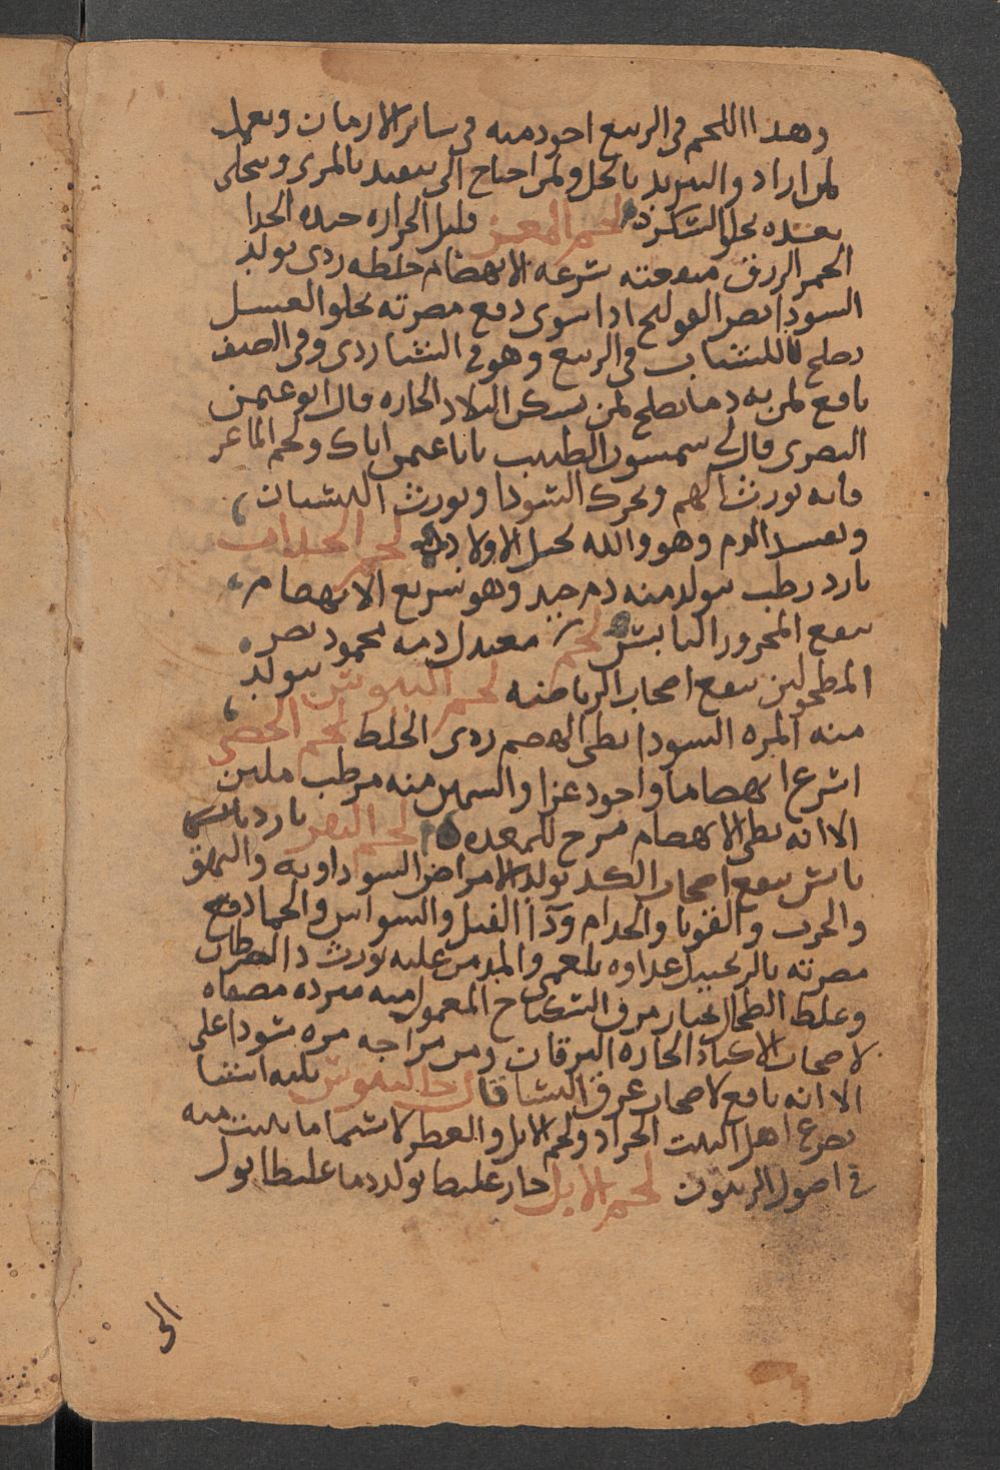 وهذا اللحم في الربيع اجود منه في ساير الازمان ويعمل
لمن اراد والتبريد بالخل ولمن احتاج الى تنفيد بالمرى ويتحلى
بعده بحلو السكر لحم المعز قليل الحراره جيده الجدا
الحمر الزرق منفعته سرعه الانهضام خلطه ردى يولد
السودا يضر القولنج اذا شوى دفع مضرته بحلو العسل
يصلح للشباب في الربيع وهو في الشتا ردى وفي الصيف
نافع لمن به دما يصلح لمن يسكن البلاد الحاره قال ابو عثمن
البصرى قال لى سمسون الطبيب يابا عثمن اياك ولحم الماعز
فانه يورث الهم ويحرك السودا ويورث النسيان
ويفسد الدم وهو والله يخبل الاولاد لحم الجداب
بارد رطب يتولد منه دم جيد وهو سريع الانهضام
ينفع المحرور اليابس لحم معتدل دمه محمود يضره
المطحولين ينفع اصحاب الرياضه لحم التيوس يتولد
منه المره السودا بطى الهضم ردى الخلط لحم الخصى
اسرع انهضاما واجود غذا والسمين منه مرطب ملين
الا انه بطى الانهضام مرخ للمعده لحم البقر بارد
يابس ينفع اصحاب الكد يولد الامراض السوداويه والبهق
والجرب والقوبا والجدام ودا الفيل والسواس والحما دفع
مضرته بالزنجبيل غداوه بلغمى والمدمن عليه يورث دا السرطان
وغلط الطحال يختار مرق السكباج المعمول منه مبرده مصفاه
لاصحاب الاكباد الحاره اليرقان ومن مزاجه مره سودا على
الا انه نافع لاصحاب عرق النسا قال يليه اشيا
تصرع اهل البيت الجراد ولحم الابل والفطر لاسيما ما ينبت منه
في اصول الزيتون لحم الابل حار غليظ يولد دما غليظا يول
الى